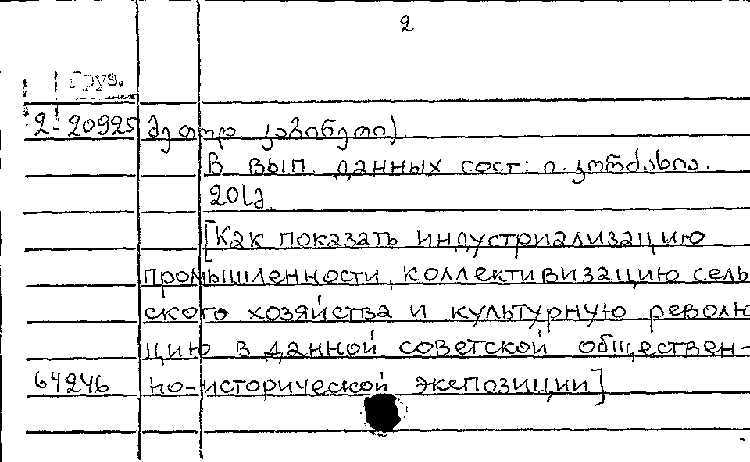 2
Груз.
2-20925 მეთოდ კაბინეტი]
В вып. данных сост: ი. კორძახია.
20 სმ.
[Как показать индустриализацию
промышленности, коллективизацию сель
ского хозяйства и культурную револю
цию в данной советской обществен-
64246 но-исторической экспозиции]